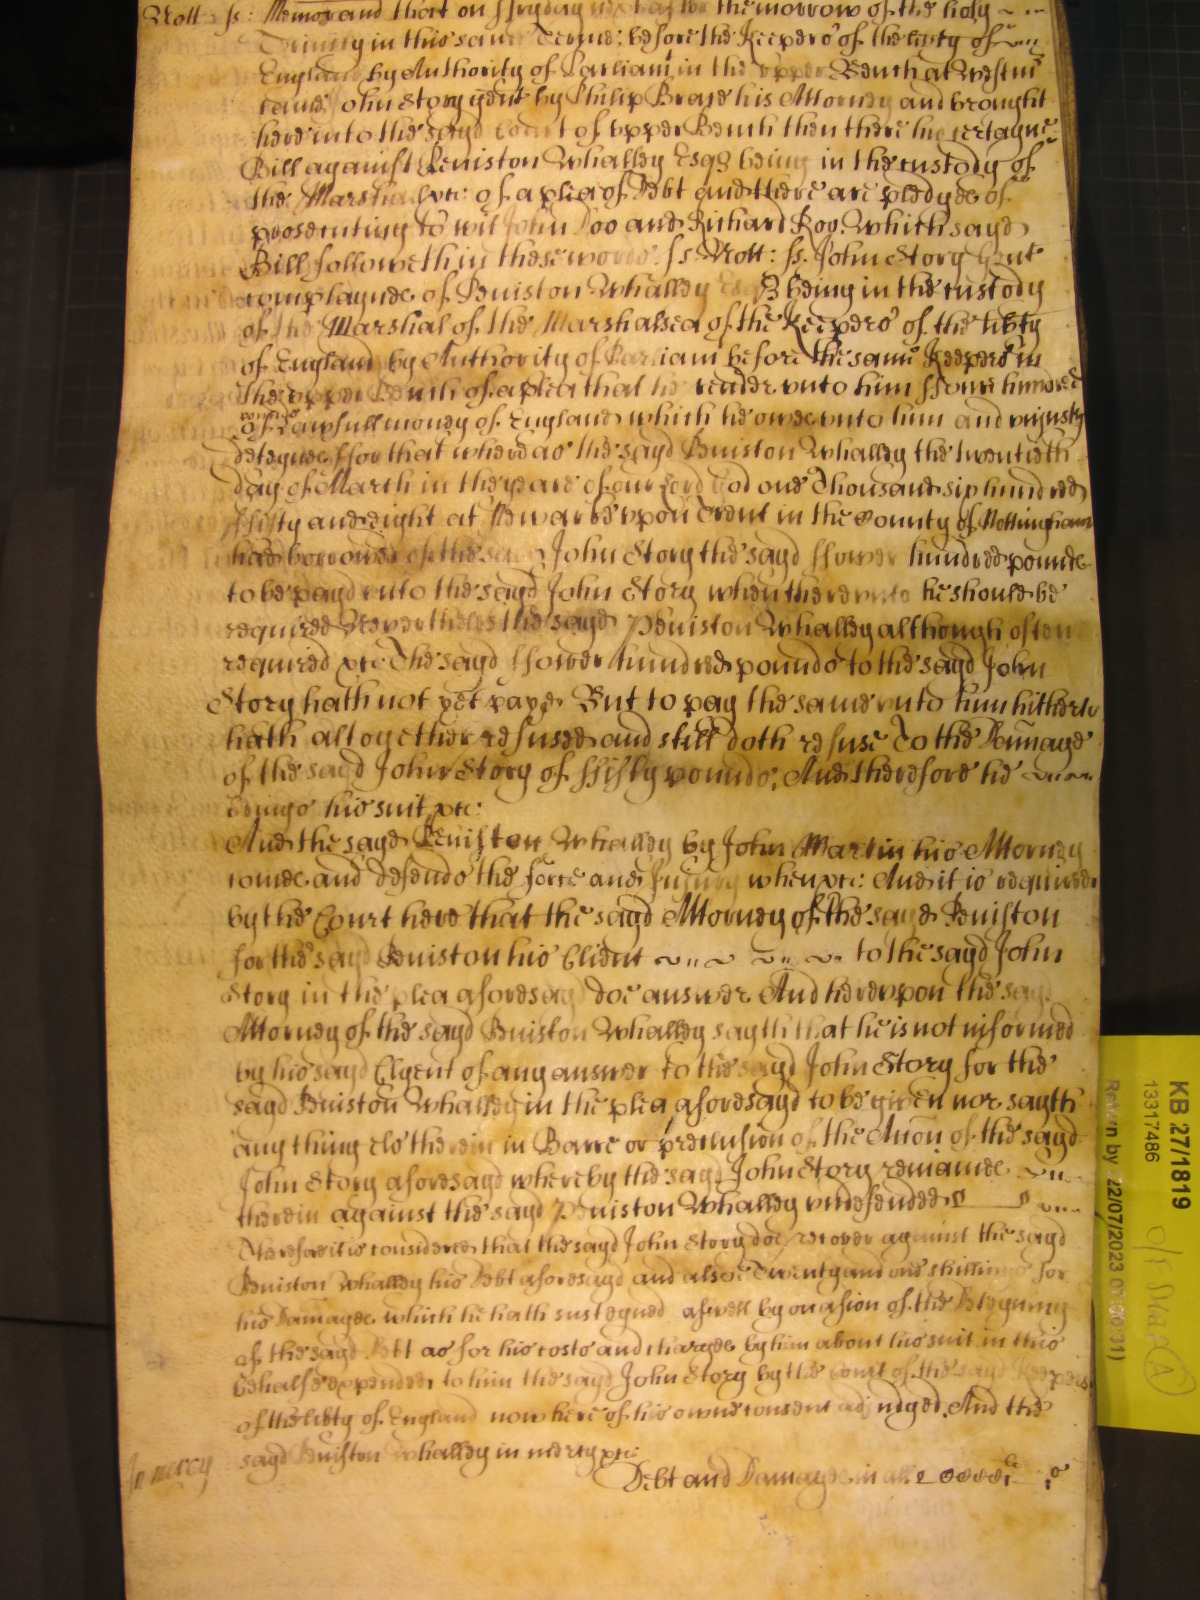 Nott: ss: Memorand that on ffryday next after the morrow of the holy
Trinity in this same Terme: before the Keepers of the libty of
England by Authority of Parliam in the vpper Bench at Westm
came John Story gent by Philip Brase his Attorney and brought
here into the sayd Court of vpper Bench then there his certayne
Bill against Peniston Whalley Esqr being in the custody of
the Marshal &c: of a plea of Debt and there are pledges of
prosecuting to wit John Doo and Richard Roo. Which sayd
Bill followeth in these words. ss Nott: ss. John Story Gent
complaynes of Peniston Whalley Esqr being in the custody
of the Marshal of the Marshalsea of the Keepers of the libty
of England by Authority of Parliam before the same Keepers in
the vpper Bench of a plea that he render vnto him ffowre hundred
pounds
of Lawfull money of England which he owes vnto him and vniustly
deteynes ffor that whereas the sayd Peniston Whalley the twentieth
day of March in the yeare of our Lord God one Thousand six hundred
ffifty and eight at Newarke vpon Trent in the County of Nottingham
had borrowed of the sayd John Story the sayd ffower hundred pounds
to be payd vnto the sayd John Story when therevnto he should be
required Neverthelesse the sayd Peniston Whalley although often
required &c The sayd ffower hundred pounds to the sayd John
Story hath not yet payd But to pay the same vnto him hitherto
hath altogether refused and still doth refuse To the Dammage
of the sayd John Story of ffifty pounds. And therefore he
brings his suit &c:
And the sayd Peniston Whalley by John Martin his Attorney
comes and defends the force and Iniury when &c: And it is required
by the Court here that the sayd Attorney of the sayd Peniston
for the sayd Peniston his Client to the sayd John
Story in the plea aforesayd doe answer And herevpon the sayd
Attorney of the sayd Peniston Whalley sayth that he is not informed
by his sayd Clyent of any answer to the sayd John Story for the
sayd Peniston Whalley in the plea aforesayd to be given nor sayth
any thing els therein in Barre or preclusion of the Accon of the sayd
John Story aforesayd whereby the sayd John Story remaines
therein against the sayd Peniston Whalley vndefended
Therefore it is considered that the sayd John Story doe recover against the sayd
Peniston Whalley his Debt aforesayd and alsoe Twenty and one shillings for
his Damages which he hath susteyned aswell by occasion of the Deteyning
of the sayd Debt as for his costs and charges by him about his suit in this
behalfe expended to him the sayd John Story by the Court of the sayd Keepers
of the libty of England now here of his owne consent adjudged. And the
sayd Peniston Whalley in mercy &c:
In mercy
Debt and Damages in all
KB 27/1819
13317486
Return by 22/07/2023
A